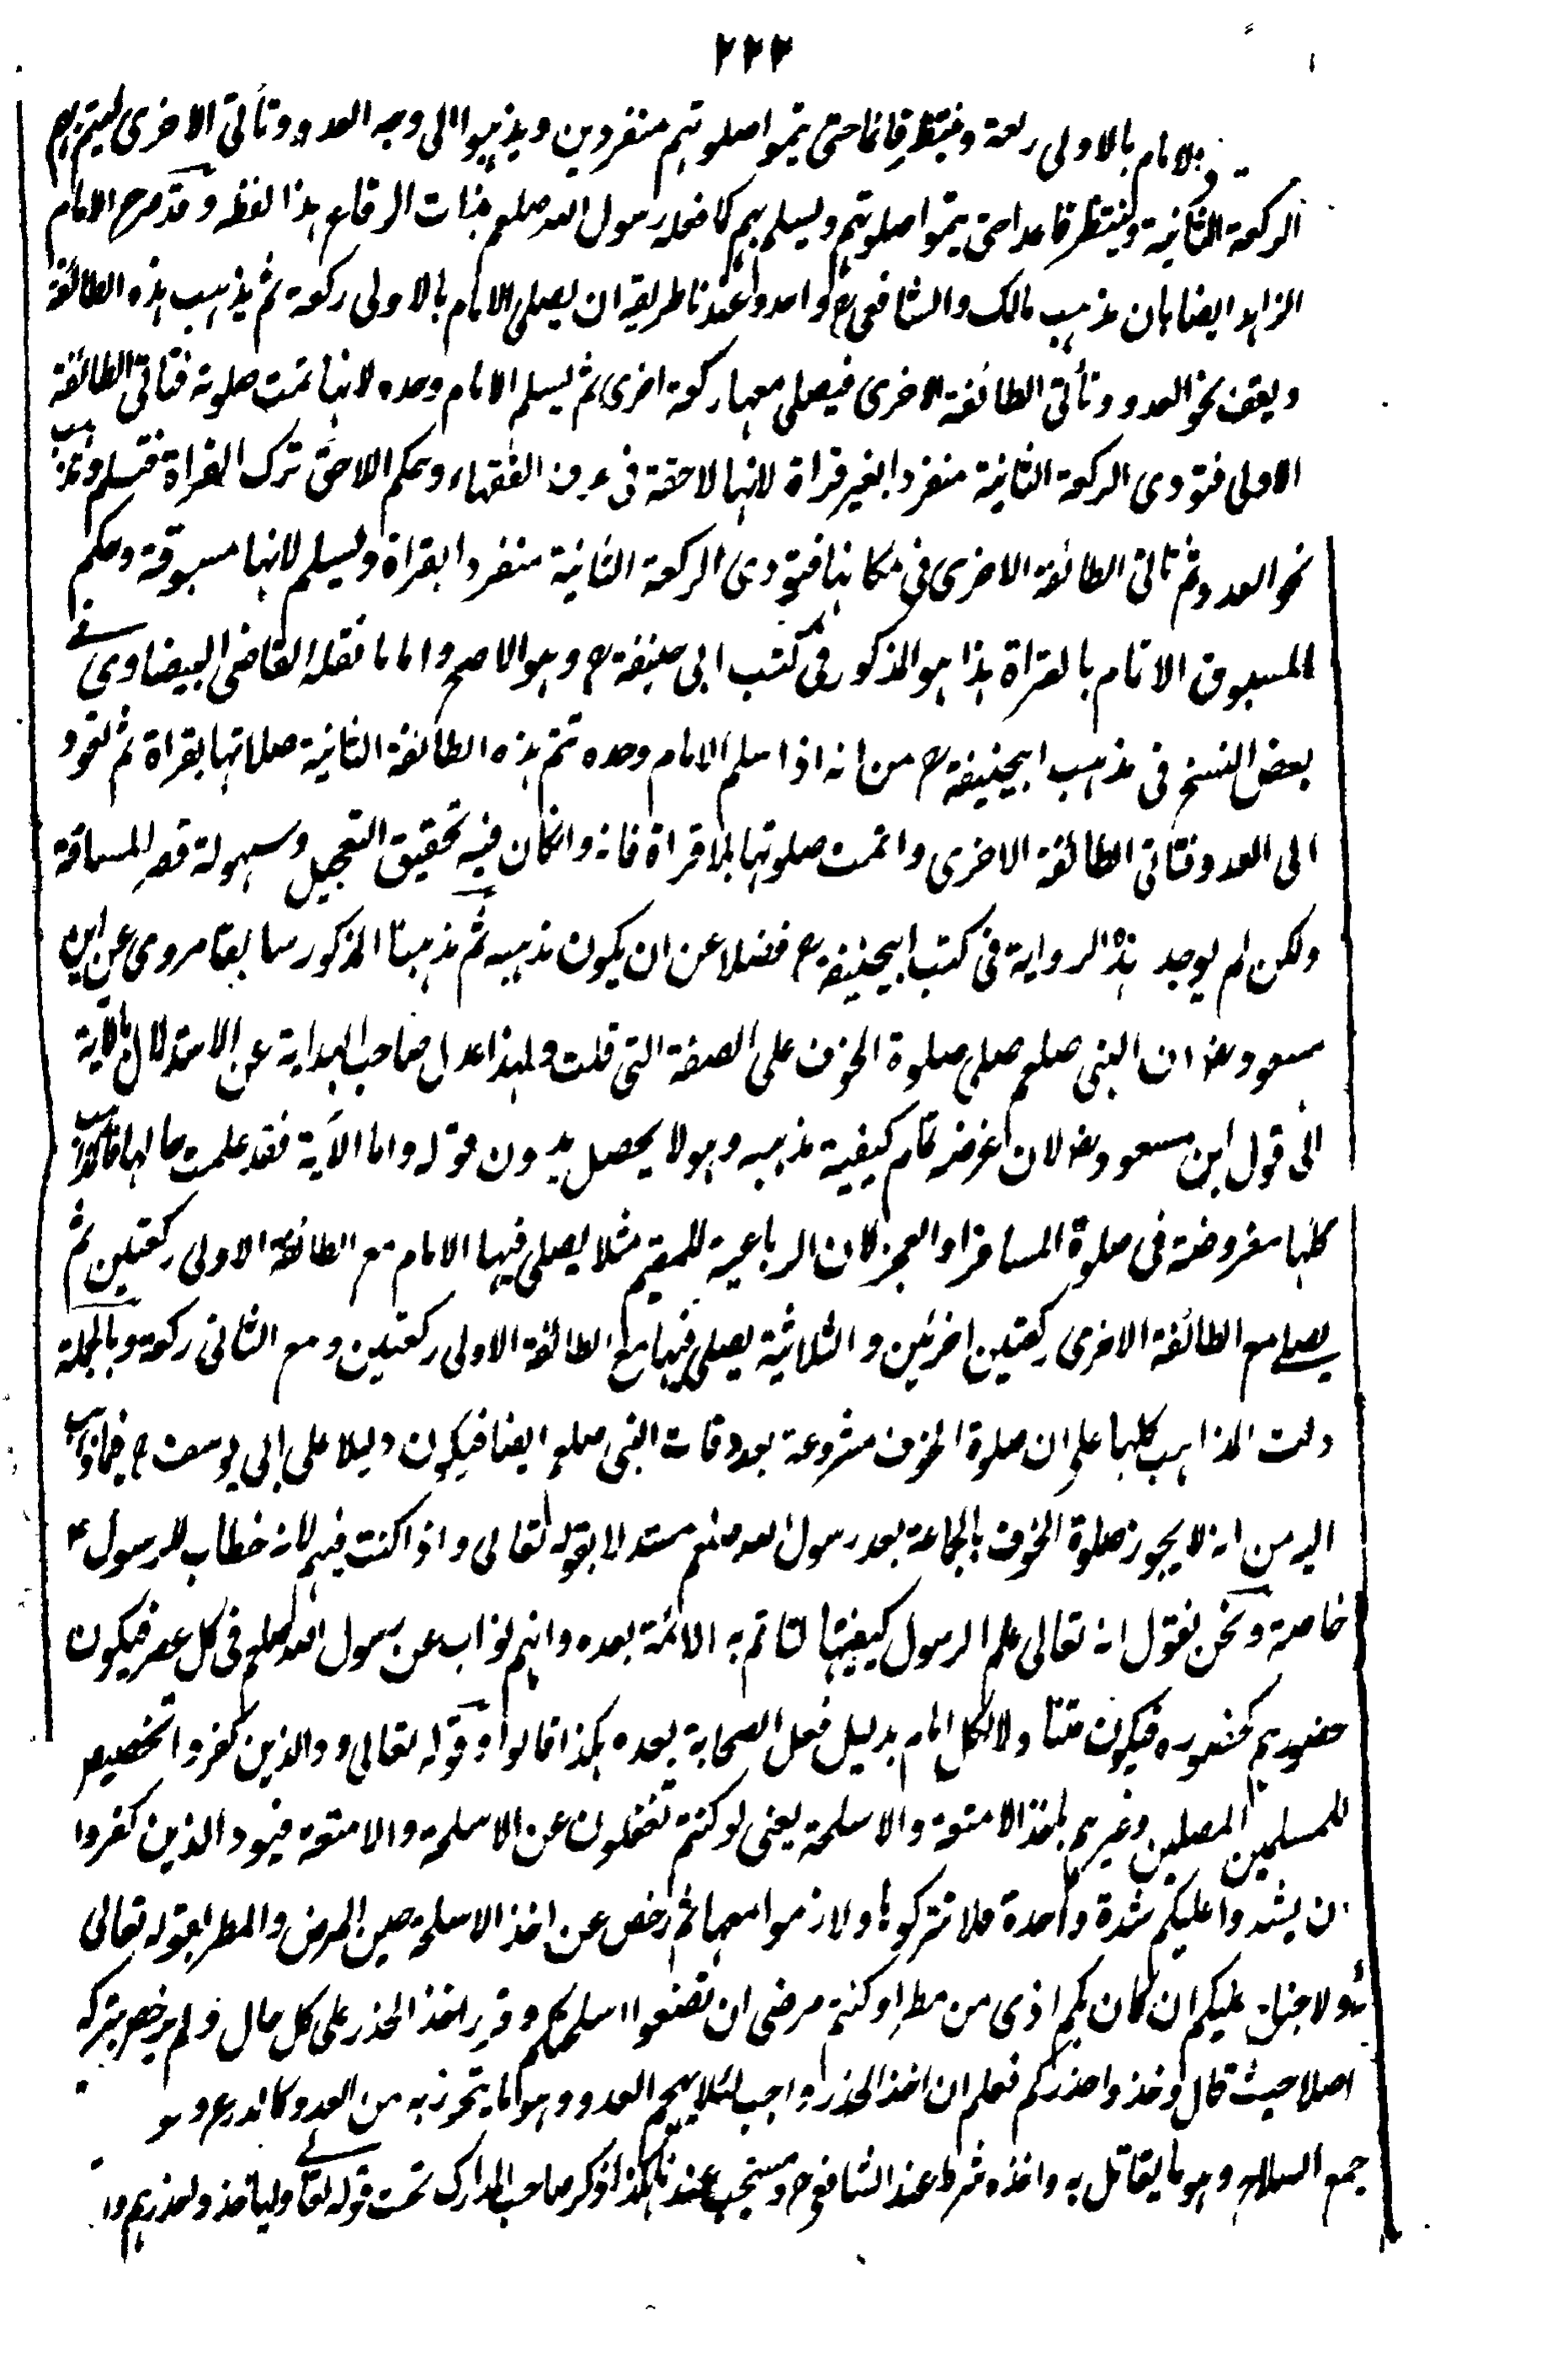 ٢٢٢
الامام بالاولى ركعة وينتظر قائما حتى يتموا صلوتهم منفردين ويذهبوا الى وجه العدو وتأتى الاخرى ليتم بهم
الركعة الثانية وينتظر قاعدا حتى يتموا صلوتهم ويسلم بهم كما فعله رسول الله صلعم بذات الرقاع هذا لفظه وقد صرح الامام
الزاهد ايضا بان مذهب مالك والشافعى رح واحد وعندنا طريقه ان يصلى الامام بالاولى ركعة ثم يذهب هذه الطائفة
ويقف نحو العدو وتأتى الطائفة الاخرى فيصلى معها ركعة اخرى ثم يسلم الامام وحده لانها تمت صلوته فتاتى الطائفة
الاولى فتودى الركعة الثانية منفردا بغير قراة لانها لاحقة فى عرف الفقهاء وحكم اللاحق ترك القراة فتسلم وتذهب
نحو العدو ثم تاتى الطائفة الاخرى فى مكانها فتودى الركعة الثانية منفردا بقراة ويسلم لانها مسبوقة وحكم
المسبوق الاتمام بالقراة هذا هو المذكور فى كتب ابى حنيفة رح وهو الاصح واما ما نقله القاضى البيضاوى فى
بعض النسخ فى مذهب ابيحنيفة رح من انه اذا سلم الامام وحده تتم هذه الطائفة الثانية صلاتها بقراة ثم تعود
الى العدو فتاتى الطائفة الاخرى واتمت صلوتها بلا قراة فانه وانكان فيه تحقيق التعجيل وسهولة قصر المسافة
ولكن لم يوجد هذه الرواية فى كتب ابيحنيفة رح فضلا عن ان يكون مذهبه ثم مذهبنا المذكور سابقا مروى عن ابن
مسعود رض ان النبى صلعم صلى صلوة الخوف على الصفة التى قلت ولهذا عدل صاحب الهداية عن الاستدلال بالآية
الى قول ابن مسعود رض لان غرضه تمام كيفية مذهبه وهو لا يحصل بدون قوله واما الآية فقد علمت حالها
كلها مفروضة فى صلوة المسافر او الفجر لان الرباعية للمقيم مثلا يصلى فيها الامام مع الطائفة الاولى ركعتين ثم
يصلى مع الطائفة الاخرى ركعتين اخرئين والثلاثية يصلى فيها مع الطائفة الاولى ركعتين ومع الثانى ركعة وبالجملة
دلت المذاهب كلها على ان صلوة الخوف مشروعة بعد وفات النبى صلعم ايضا فيكون دليلا على ابى يوسف رح فيما ذهب
اليه من انه لا يجوز صلوة الخوف بالجماعة بعد رسول الله صلعم مستدلا بقوله تعالى واذا كنت فيهم لانه خطاب للرسول ع
خاصة ونحن نقول انه تعالى علم الرسول كيفيتها لتاتم به الائمة بعده وانهم نواب عن رسول الله صلعم فى كل عصر فيكون
حضورهم كحضوره فيكون متناولا لكل امام بدليل فعل الصحابة بعده هكذا قالوا وقوله تعالى ود الذين كفروا تخصيص
للمسلمين المصلين وغيرهم باخذ الامتعة والاسلحة يعنى لو كنتم تغفلون عن الاسلحة والامتعة فيود الذين كفروا
ان يشدوا عليكم شدة واحدة فلا تتركوها ولازموا معها ثم رخص عن اخذ الاسلحة حين المرض والمطر بقوله تعالى
ولا جناح عليكم ان كان بكم اذى من مطر او كنتم مرضى ان تضعوا اسلحتكم وقرر اخذ الحذر على كل حال ولم يرخص بتركه
اصلا حيث قال وخذوا حذركم فعلم ان اخذ الحذر واجب لئلا يهجم العدو وهو ما يتحرز به من العدو كالدرع و
جمع السلاح وهو ما يقاتل به واخذه شرط عند الشافعى رح ومستحب عندنا هكذا ذكر صاحب المدارك تحت قوله تعا وليأخذوا حذرهم